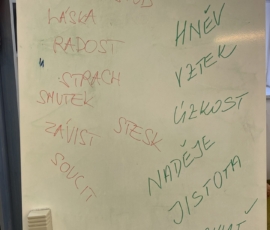 LÁSKA
RADOST
STRACH
SMUTEK
ZÁVIST
STESK
SOUCIT
HNĚV
VZTEK
ÚZKOST
NADĚJE
JISTOTA